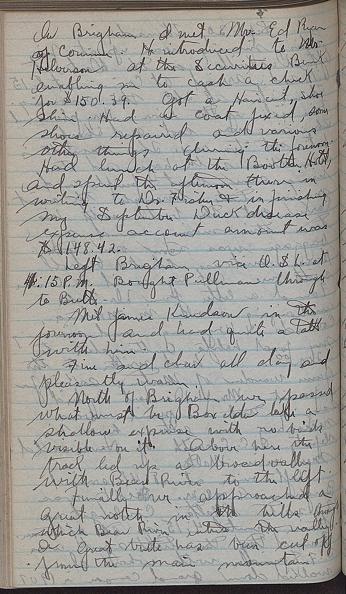 In Brigham I met Mr. Ed Ryan
of Corinne. He introduced to Mr.
Halverson at the Securities Bank
enabling me to cash a check
for $150.39. Got a Haircut, shoe
shine. Had a coat fixed, some
shoes repaired and various
other things during the forenoon.
Had lunch at the Booth Hotel
and spent the afternoon there in
writing to Dr. Fisher & in finishing
my September Duck disease
expense account amount was
$148.42.
Left Brigham via O.S.L. at
4:15 P.M. Bought Pullman through
to Butte.
Met James Knudson in the
forenoon and had quite a talk
with him.
Fine and clear all day and
pleasantly warm.
North of Brigham we passed
what must be Box elder lake a
shallow expanse with no birds
visible on it. Above here the
track led up a broad valley
with Bear River to the left.
Finally we approached a
great notch in the hills through
which Bear River enters the valley
A great butte has been cut off
from the main mountain